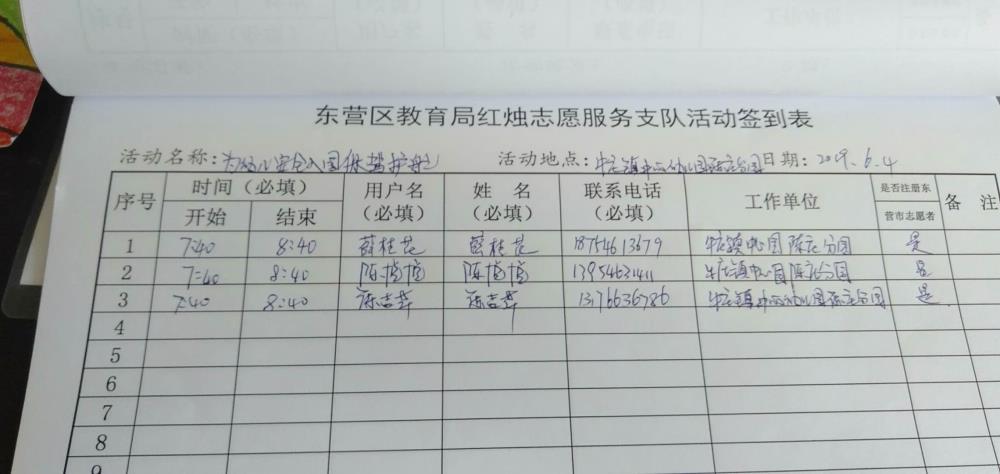 东营区教育局红烛志愿服务支队活动签到表
活动名称:为幼儿安全入园保驾护航 活动地点:牛庄镇中心幼儿园陈庄分园 日期:2019.6.4
序号 时间(必填) 用户名(必填) 姓 名(必填) 联系电话(必填) 工作单位 是否注册东营市志愿者 备 注
开始 结束
1 7:40 8:40 桂花 桂花 18754613679 牛庄镇中心园陈庄分园 是
2 7:40 8:40 陈 陈 13954631411 牛庄镇中心园陈庄分园 是
3 7:40 8:40 陈吉萍 陈吉萍 1376636786 牛庄镇中心幼儿园陈庄分园 是.
4
5
6
7
8
9